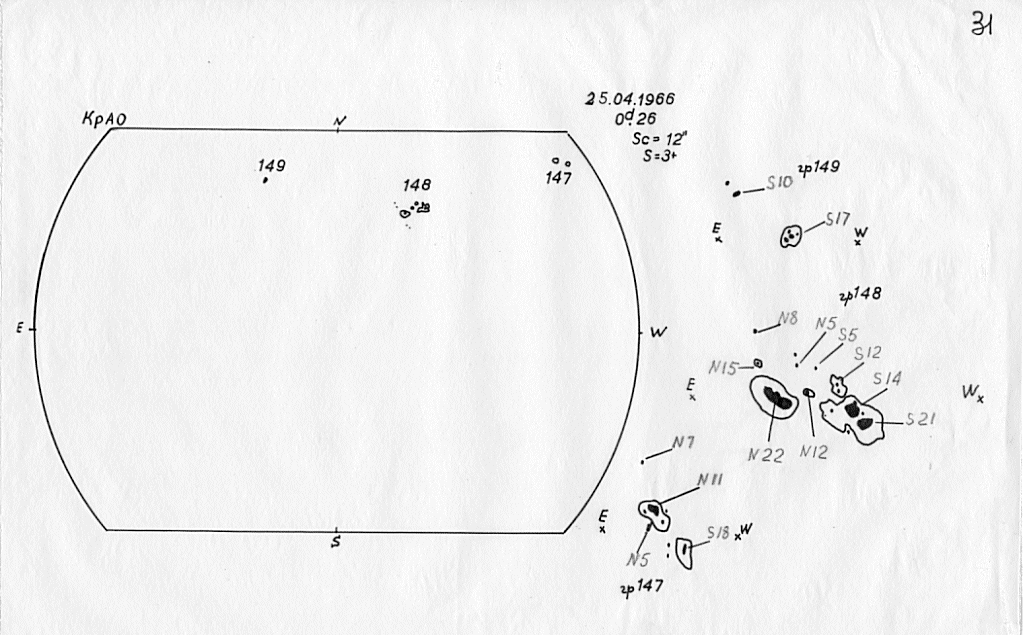 31
25.04.1966
0d.26
Sc = 12"
S=3+
КрАО
N
149
148
147
E
W
S
гр149
S10
S17
E
W
гр148
N8
N5
S5
N15
S12
S14
E
W
S21
N22
N12
N7
N11
E
W
S18
N5
гр147